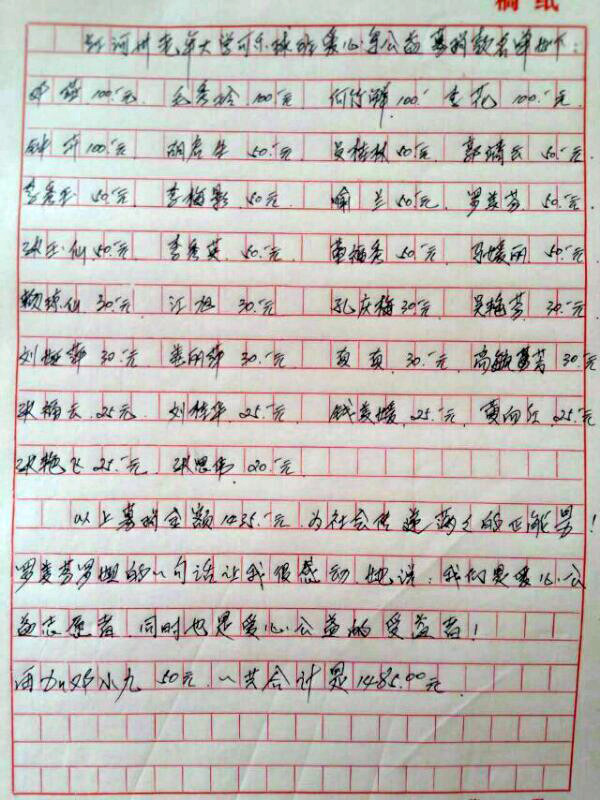 稿纸
红河州老年大学可乐球班爱心与公益募捐款名单如下:
100.元 毛秀玲 100.元 何竹 100. 李花 100.元
钟 100.元 胡 50.元 桂林 50.元 郭靖云 50.元
李秀玉 50.元 李梅影 50元 喻兰 50元 罗美芬 50元
张玉仙 50.元 李秀英 50.元 董梅秀 50.元 马媛丽 50.元
赖琼仙 30.元 江旭 30.元 孔庆梅 30.元 吴艳芬 30.元
刘 萍 30.元 丽萍 30.元 页页 30.元 高敏 30元
张梅云 25元 刘桂华 25.元 钱美媛 25.元 黄向红 25.元
张艳飞 25.元 张思伟 20.元
以上募捐金额1435.元,为社会传递满之的正能量!
罗美芬罗姐的一句话让我很感动,她说:我们是爱心公
益志愿者,同时也是爱心公益的受益者!
再加邓小九50元.一共合计是1485.00元